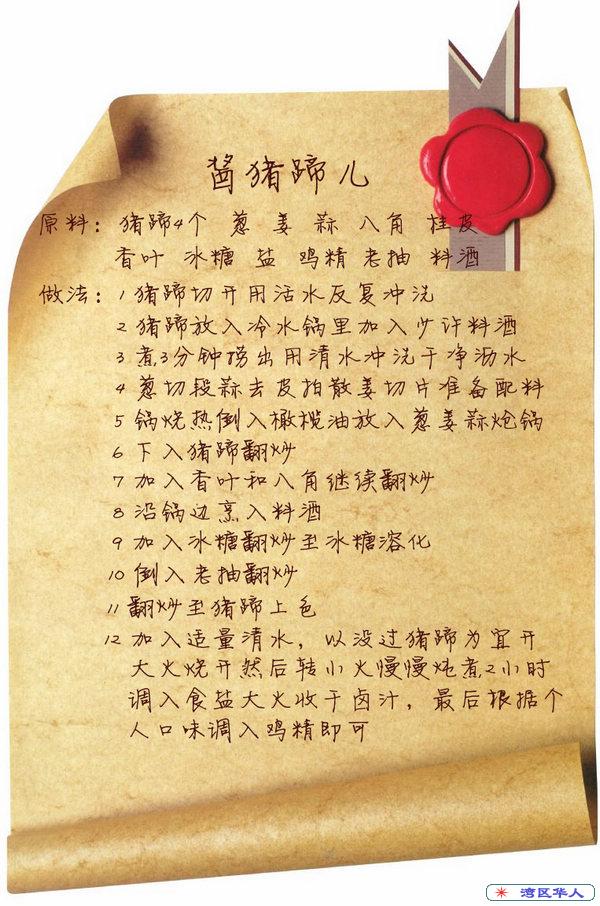 酱猪蹄儿
原料：猪蹄4个 葱 姜 蒜 八角 桂皮
香叶 冰糖 盐 鸡精 老抽 料酒
做法：1 猪蹄切开用活水反复冲洗
2 猪蹄放入冷水锅里加入少许料酒
3 煮3分钟捞出用清水冲洗干净沥水
4 葱切段蒜去皮拍散姜切片准备配料
5 锅烧热倒入橄榄油放入葱姜蒜炝锅
6 下入猪蹄翻炒
7 加入香叶和八角继续翻炒
8 沿锅边烹入料酒
9 加入冰糖翻炒至冰糖溶化
10 倒入老抽翻炒
11 翻炒至猪蹄上色
12 加入适量清水，以没过猪蹄为宜开
大火烧开然后转小火慢慢炖煮2小时
调入食盐大火收干卤汁，最后根据个
人口味调入鸡精即可
湾区华人